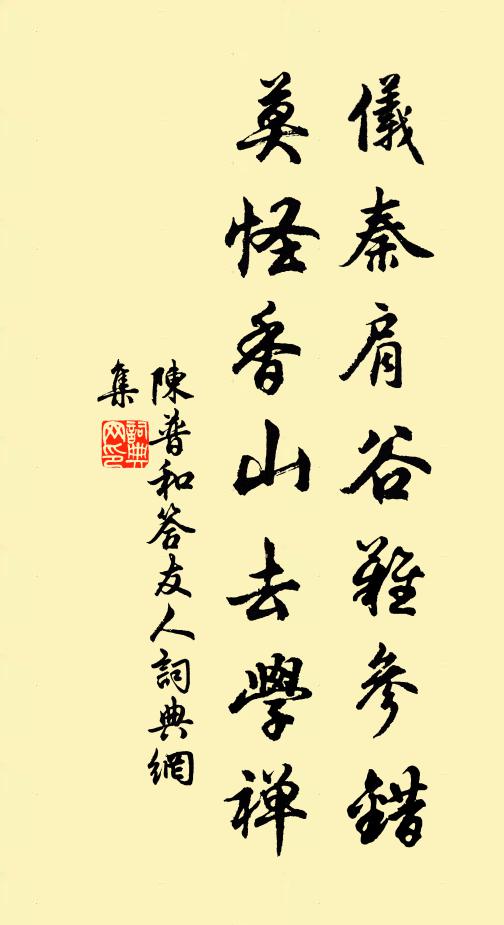 儀秦肩谷難參錯
莫怪香山去學禅
陳普和答友人詞典網
集
詞典
网印